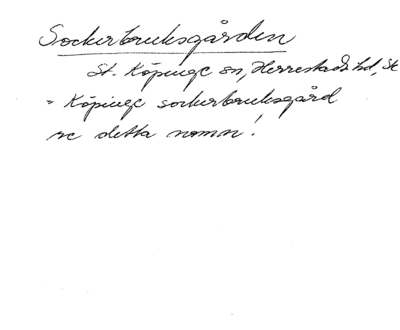 Sockerbruksgården
St. Köpinge sn, Herrestads hd, Sk
= Köpinge sockerbruksgård
se detta namn!